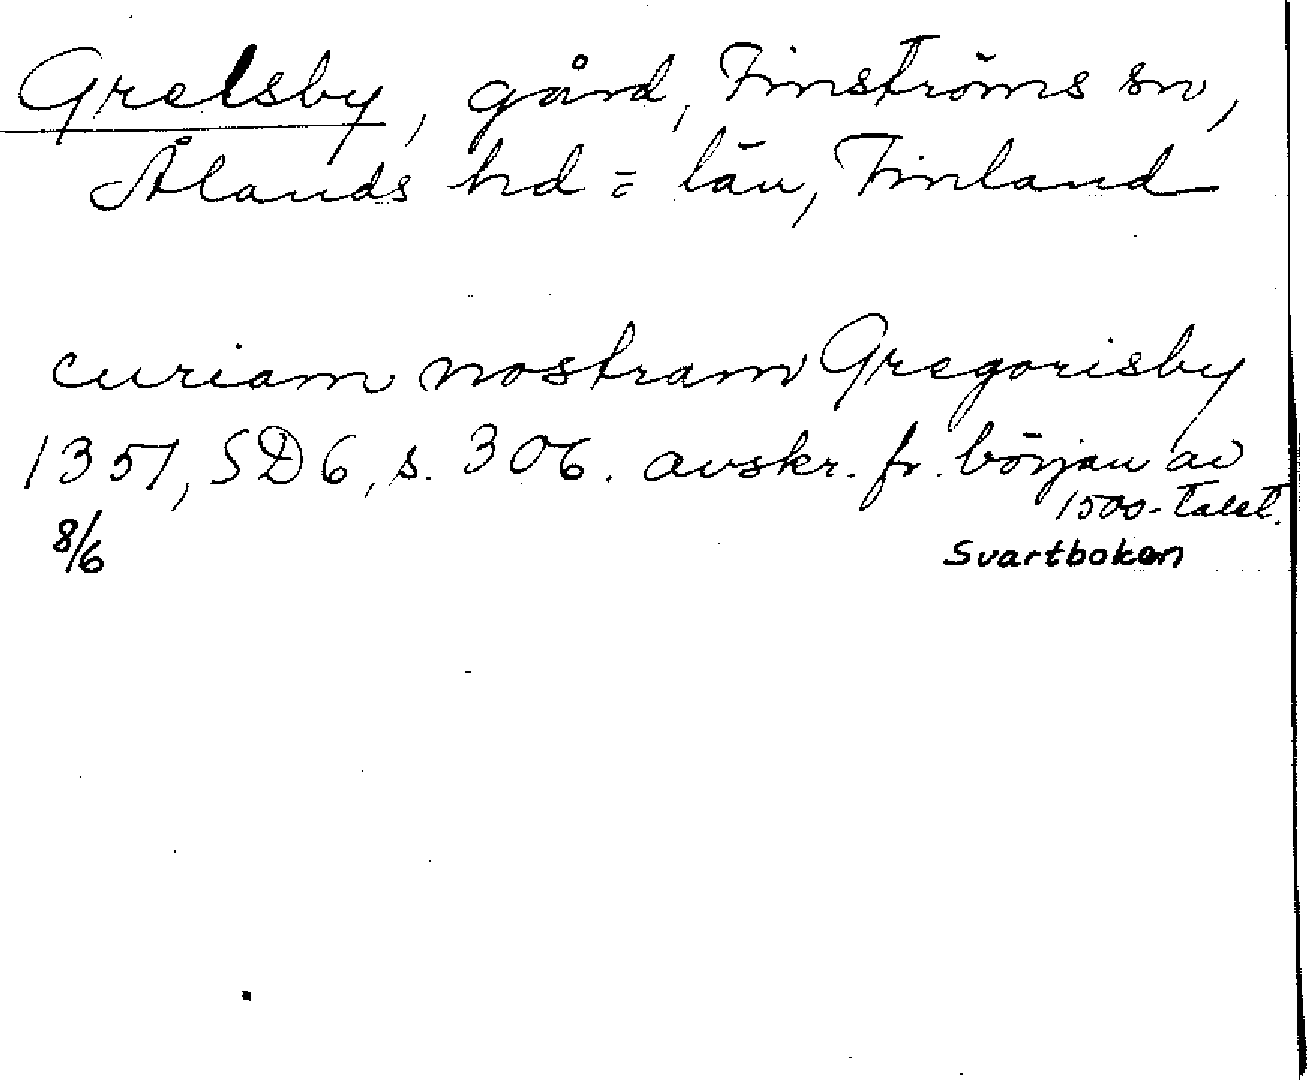 Grelsby, gård, Finströms sn,
Ålands hd = län, Finland
curiam nostram Gregorisby
1351, SD 6, s. 306. avskr. fr. början av
1500-talet.
8/6
Svartboken